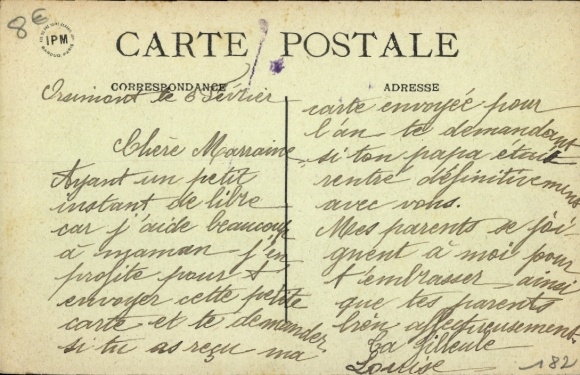 8€
IPM
CARTE POSTALE
CORRESPONDANCE
ADRESSE
le 3 Février
Chère Marraine
Ayant un petit
instant de libre
car j'aide beaucoup
à maman j'en
profite pour t
envoyer cette petite
carte et te demander
si tu as reçu ma
carte envoyée pour
l'an te demandant
si ton papa était
rentré définitivement
avec vous.
Mes parents se joi
gnent à moi pour
t'embrasser ainsi
que tes parents
bien affectueusement.
Ta filleule
Louise
182